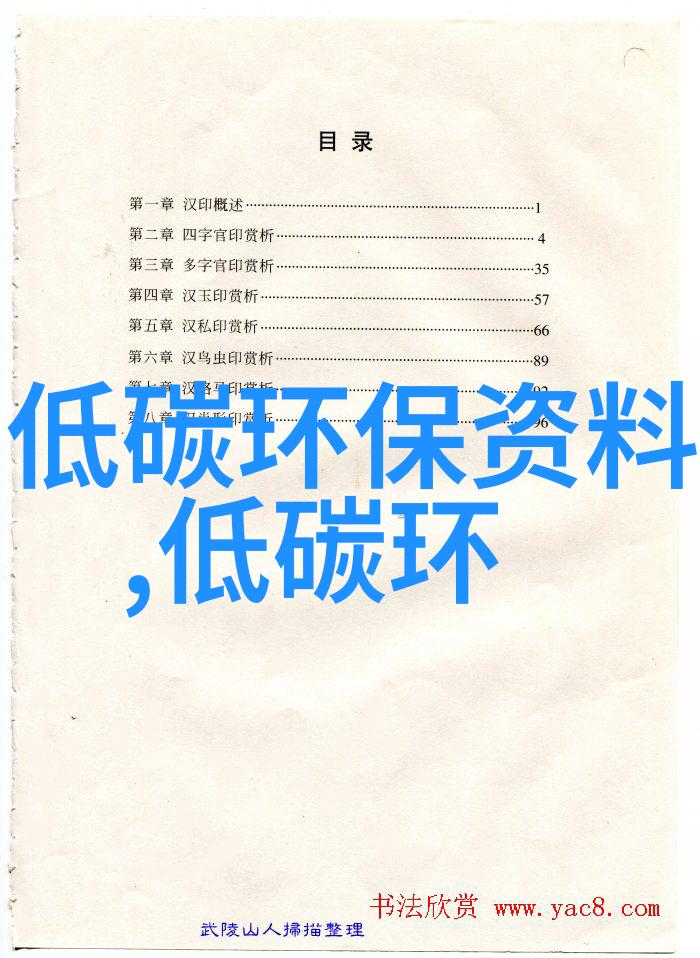 目 录
第一章 汉印概述 1
第二章 四字官印赏析 4
第三章 多字官印赏析 35
第四章 汉玉印赏析 57
第五章 汉私印赏析 66
第六章 汉鸟虫印赏析 89
第七章 汉烙马印赏析 92
第八章 汉肖形印赏析 96
低碳环保资料
,低碳环
书法欣赏 www.yac8.com
武陵山人掃描整理